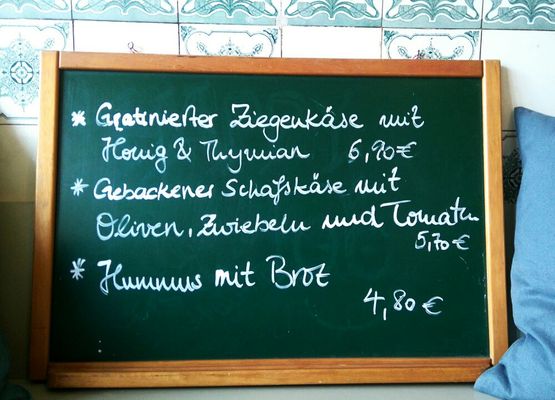 * Gratinierter Ziegenkäse mit
Honig & Thymian 6,90€
* Gebackener Schafskäse mit
Oliven, Zwiebeln und Tomaten
5,70€
* Hummus mit Brot
4,80€